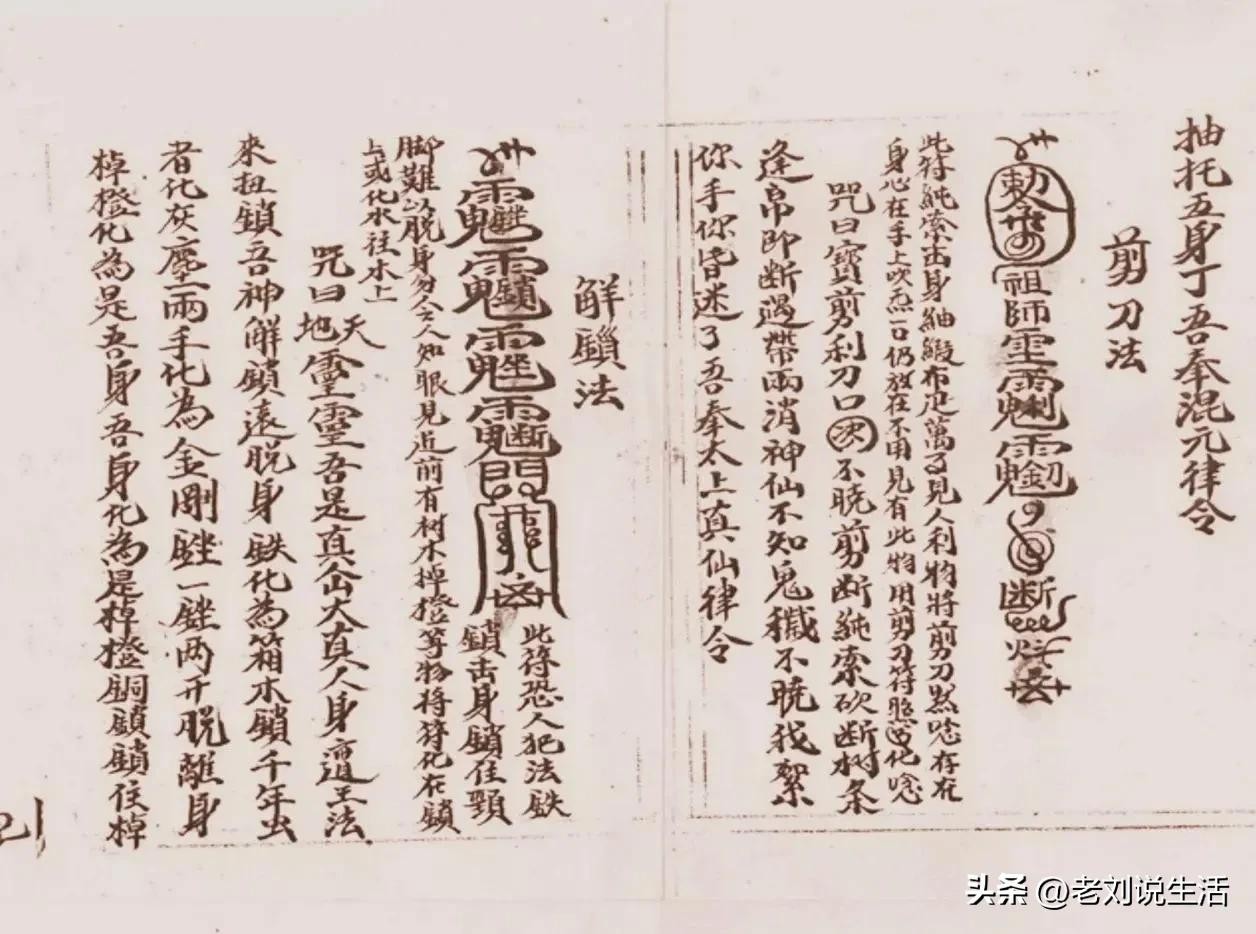 抽托五身丁吾奉混元律令
剪刀法
勅
祖師
断
此符純索击身紬緞布疋萬了見人利物將剪刀然唸存在
身心在手上吹炁一口仍放在不用見有此物用剪刀符照化唸
咒曰寶剪利刀口不晓剪断純索砍断树条
逢帛即断遇帶兩消神仙不知鬼不晓我絮
你手你昏迷了吾奉太上真仙律令
解鎖法
此符恐人犯法鉄
鎖击身鎖住頸
脚難以脱身勿令人知眼見近前有树木棹橙等物将符化在鎖
上或化水往水上
咒曰天地靈靈吾是真人身邉王法
來扭鎖吾神解鎖遠脱身鉄化為箱木鎖千年出
者化灰塵兩手化為金剛一两开脱離身
棹橙化為是吾身吾身化為是棹橙銅鎖鎖住棹
头条 @老刘说生活